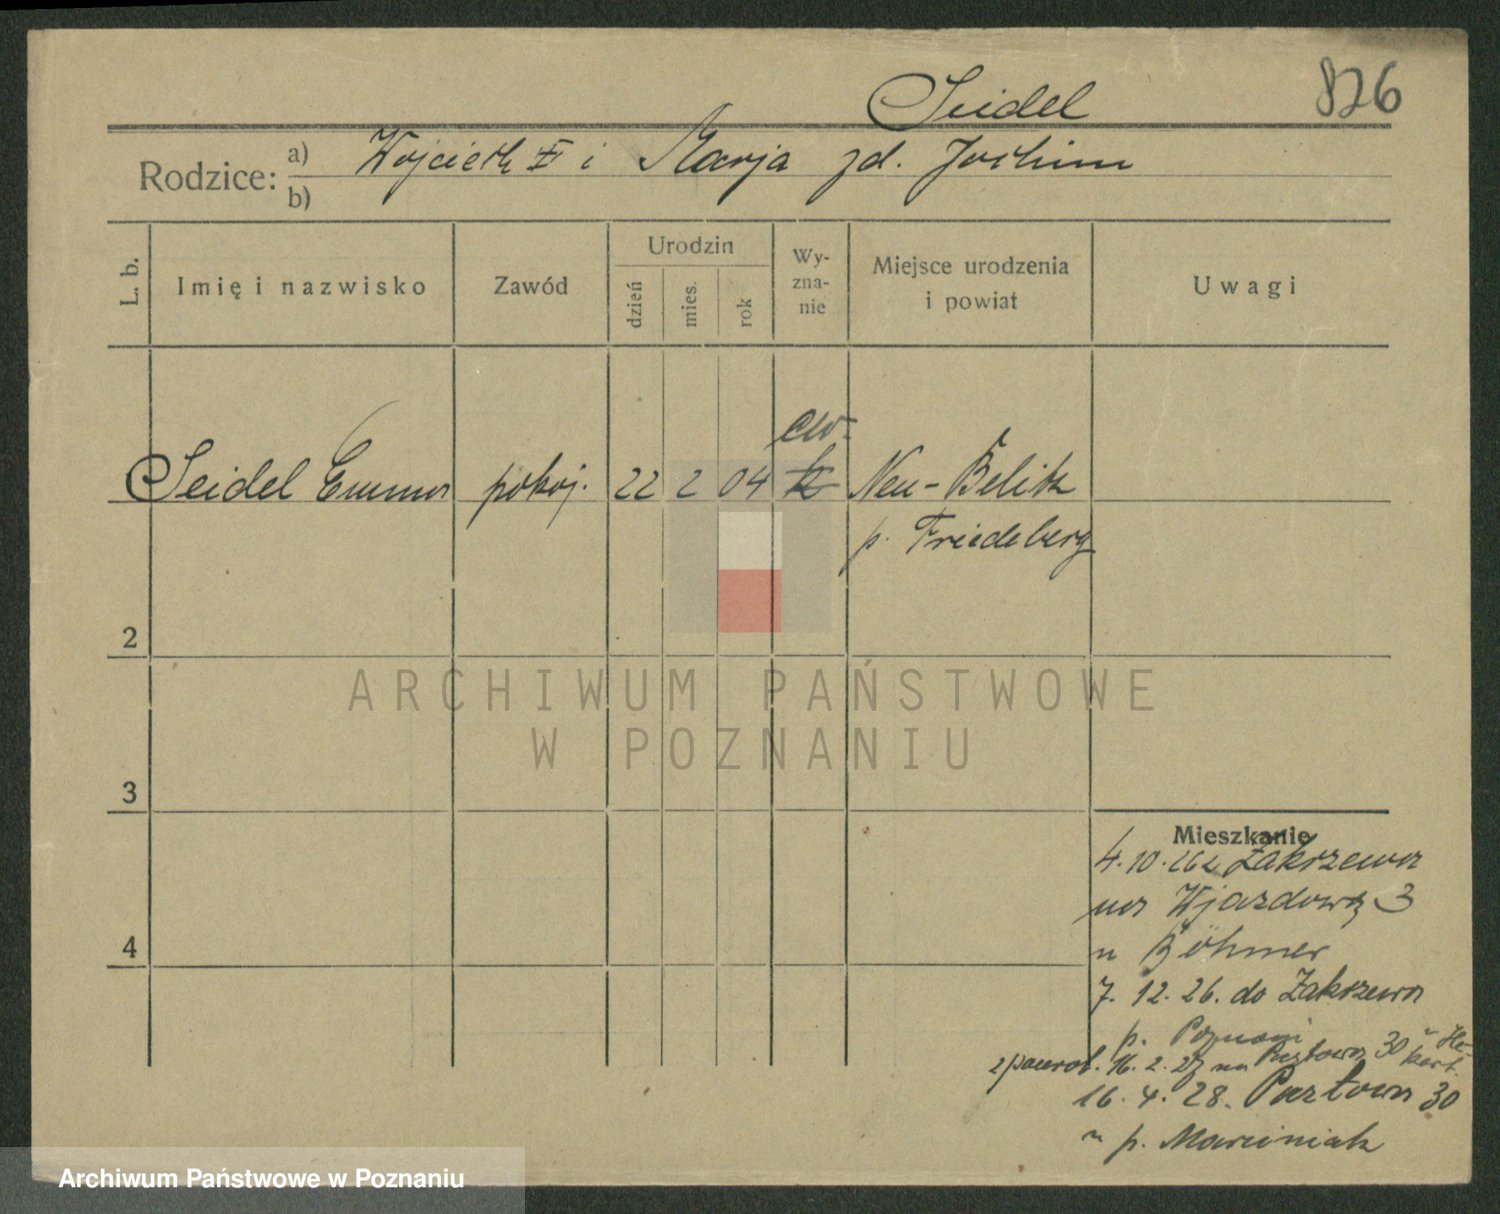 826
Seidel
Rodzice: a) Wojciech i Marja zd. Jochim
b)
L. b.
Imię i nazwisko
Zawód
Urodzin
dzień
mies.
rok
Wy-
zna-
nie
Miejsce urodzenia
i powiat
Uwagi
ew.
Seidel Emma pokoj. 22 2 04 k Neu-Belitz
p. Friedeberg
2
ARCHIWUM PAŃSTWOWE
W POZNANIU
3
Mieszkanie
4. 10. 26 z Zakrzewa
na Wjazdową 3
u Böhmer
4
7. 12. 26. do Zakrzewa
p. Poznań
zpowrot. 16. 2. 27 na Pocztowa 30 u
16. 4. 28. Pocztowa 30
u p. Marciniak
Archiwum Państwowe w Poznaniu